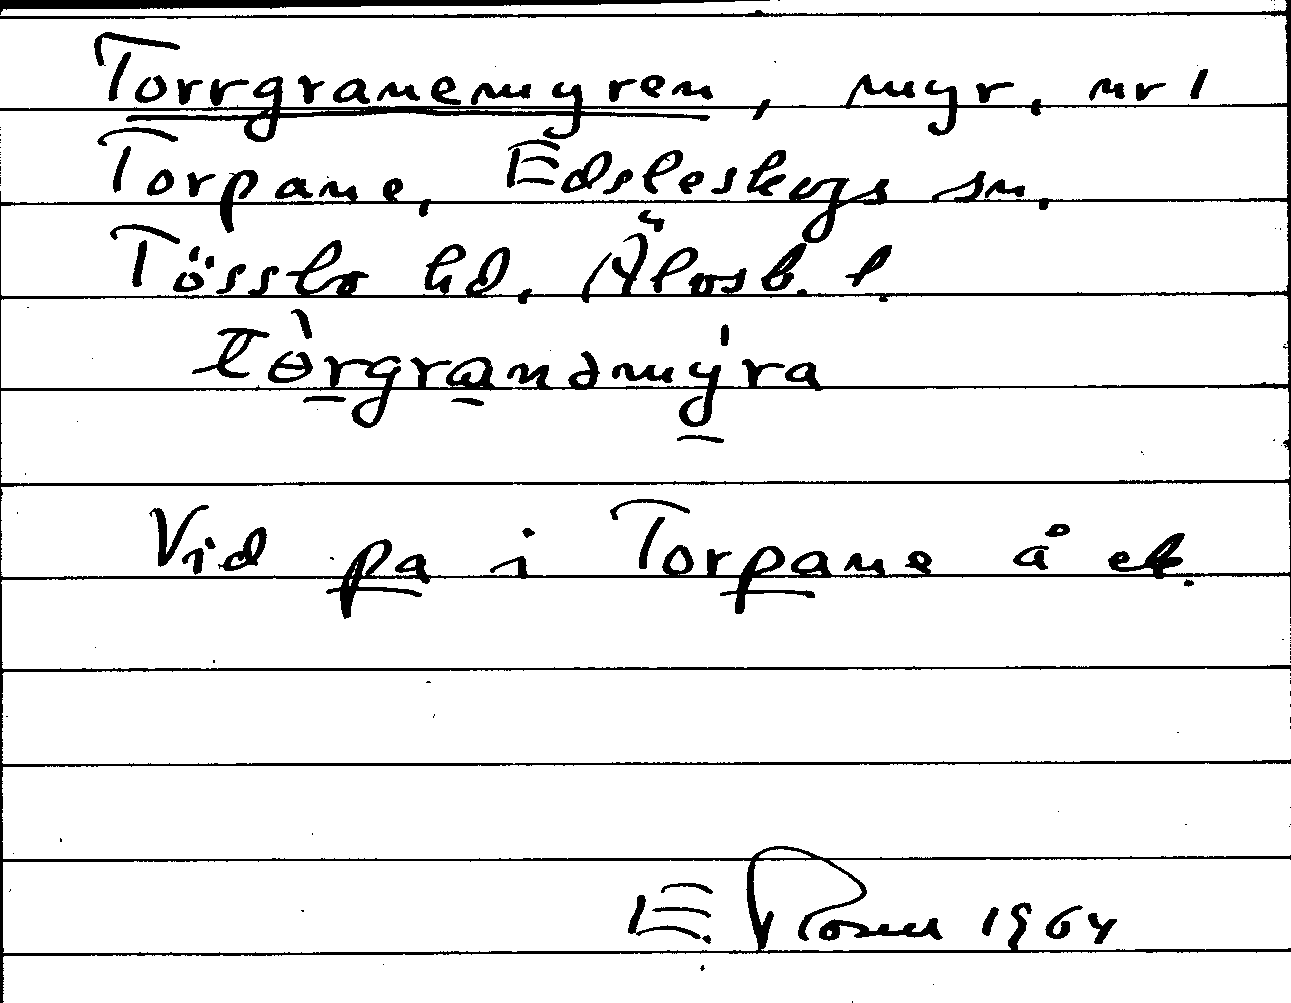 Torrgranemyren, myr, nr 1
Torpane, Edsleskogs sn.
Tössbo hd, Älvsb. l.
tòrgranəmýra
Vid pa i Torpane å ek.
E. Rosell 1964